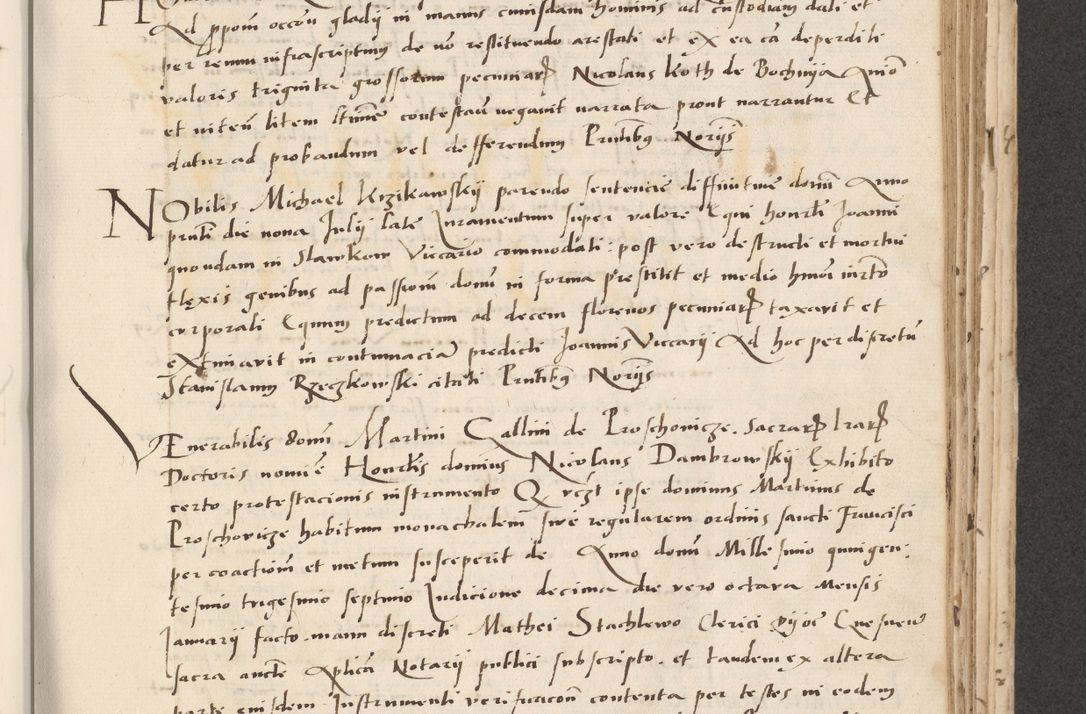 Ad ꝓpoīn occoū gladij in manus cuiusdam hominis ad custodiam dati et
per remm infrascriptum de nō restituendo arestati et ex ea cā deperditi
valoris triginta grossorum pecuniaꝝ Nicolaus Koth de Bochnija
et uiteū litem contestaū negauit narrata prout narrantur Et
datur ad probandum vel defferendum Pnūtibꝰ Norijs
NObilis Michael Krzikawskij parendo sentencie diffinitiue domī Anno
pnūti die nona Julij late Juramentum super valore Equi honrłi Joanni
quondam in Slawkow Viccario commodati : post vero destructi et mortui
flexis genibus ad passiom̄ domī in forma prestitit et medio hmoī iurto
corporali Equum predictum ad decem florenos pecuniaꝝ taxavit et
in contumaciā predicti Joannis Viccarij Ad hoc per discretū
Stanislaum Rzeczkowski citati Pnūtibꝰ Norijs
VEnerabilis domī Martini Gallini de Proschouicze . Sacraꝝ lraꝝ
Doctoris nomīe Honrłis dominus Nicolaus Dambrowskij Exhibito
certo protestacionis instrumento Q ipse dominus Martinus de
Proschovicze habitum monachalem siue regularem ordinis sancti Francisci
per coactiom̄ et metum susceperit de Anno domī Millesimo quingen:
tesimo trigesimo septimo Judicione decima die vero octava Mensis
Januarij facto . manu discreti Mathei Stachlewo Clerici
sacra aucte Aplica Notarij publici subscripto . et tandem ex altera
parte eiusdem Instrumenti verificacoīi contenta per testes in eodem